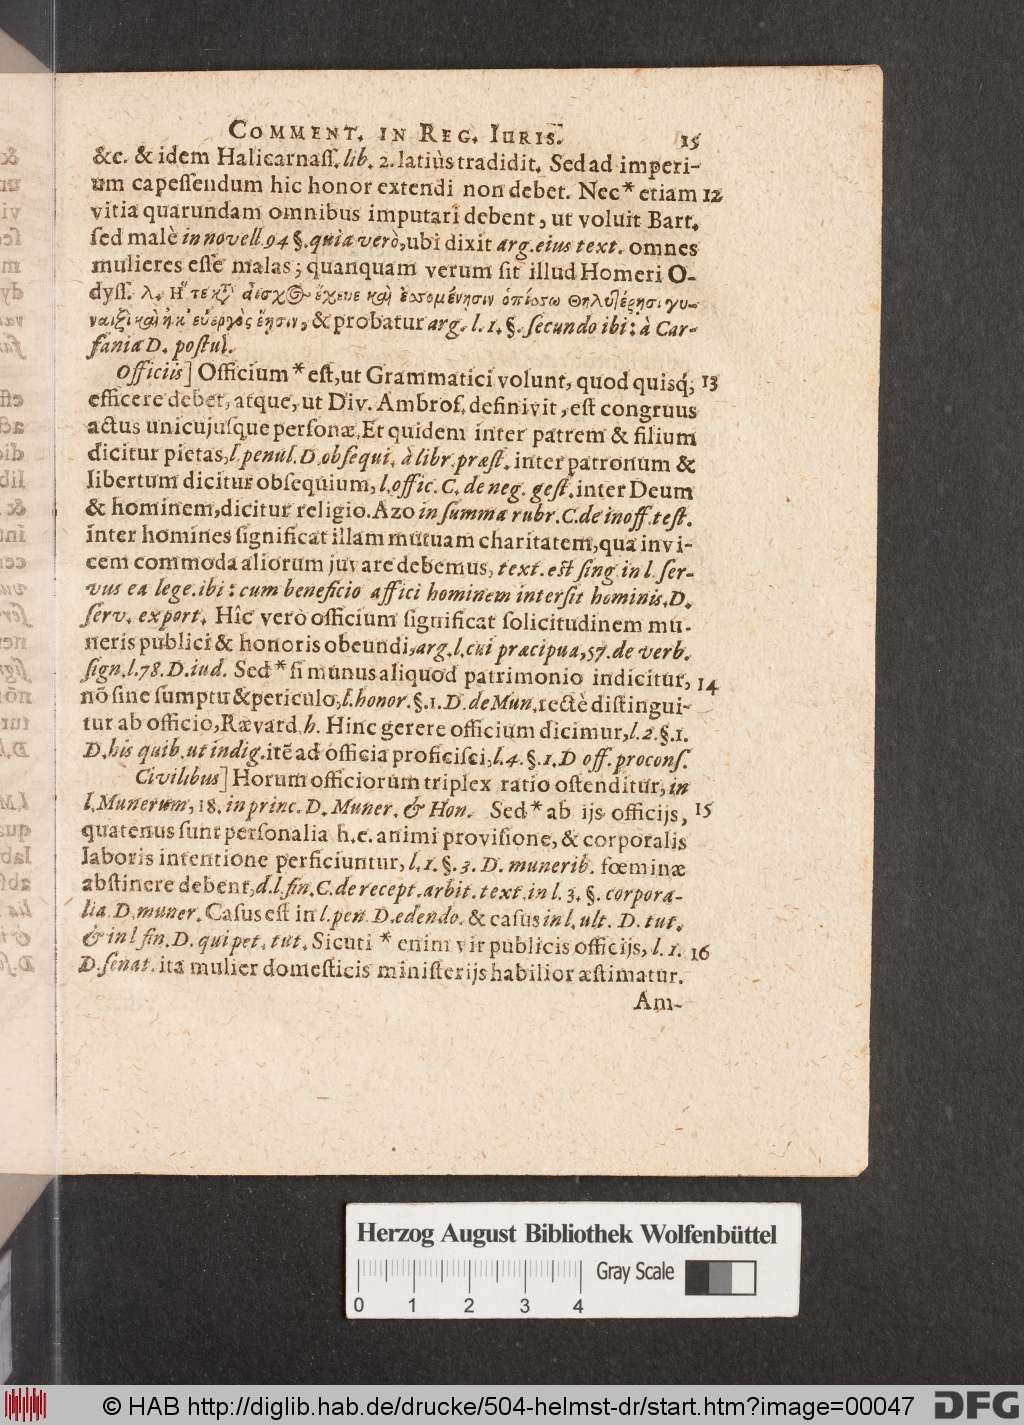 COMMENT. IN REG. IURIS. 15
&c. & idem Halicarnaſſ. lib. 2. latiùs tradidit. Sed ad imperi-
um capeſſendum hic honor extendi non debet. Nec * etiam 12
vitia quarundam omnibus imputari debent, ut voluit Bart.
ſed malè in novell. 94 §. quia verò, ubi dixit arg. eius text. omnes
mulieres eſſe malas; quanquam verum ſit illud Homeri O-
dyſſ. λ. Η τε κτ̀ αἶσχος ἔχευε καὶ ἐσσομένησιν ὀπίσσω θηλυτέρησι γυ-
ναιξὶ καὶ ἥ κ' εὐεργὸς ἔησιν, & probatur arg. l. 1. §. ſecundo ibi: à Car-
fania D. poſtul.
Officiis] Officium * eſt, ut Grammatici volunt, quod quisq; 13
efficere debet, atque, ut Div. Ambroſ. definivit, eſt congruus
actus unicujuſque perſonæ. Et quidem inter patrem & filium
dicitur pietas, l penul. D. obſequi. à libr. præſt. inter patronum &
libertum dicitur obſequium, l. offic. C. de neg. geſt. inter Deum
& hominem, dicitur religio. Azo in ſumma rubr. C. de inoff. teſt.
inter homines ſignificat illam mutuam charitatem, qua invi-
cem commoda aliorum juvare debemus, text. eſt ſing. in l. ſer-
vus ea lege. ibi: cum beneficio affici hominem interſit hominis. D.
ſerv. export. Hîc verò officium ſignificat ſolicitudinem mu-
neris publici & honoris obeundi, arg. l. cui præcipua, 57. de verb.
ſign. l. 78. D. iud. Sed * ſi munus aliquod patrimonio indicitur, 14
nō ſine ſumptu & periculo, l. honor. §. 1. D. de Mun. rectè diſtingui-
tur ab officio, Rævard. h. Hinc gerere officium dicimur, l. 2. §. 1.
D. his quib. ut indig. itē ad officia proficiſci, l. 4. §. 1. D off. proconſ.
Civilibus] Horum officiorum triplex ratio oſtenditur, in
l. Munerum, 18. in princ. D. Muner. & Hon. Sed * ab ijs officijs, 15
quatenus ſunt perſonalia h. e. animi proviſione, & corporalis
laboris intentione perficiuntur, l. 1. §. 3. D. munerib. fœminæ
abſtinere debent, d. l. fin. C. de recept. arbit. text. in l. 3. §. corpora-
lia. D. muner. Caſus eſt in l. pen. D. edendo. & caſus in l. ult. D. tut.
& in l fin. D. qui pet. tut. Sicuti * enim vir publicis officijs, l. 1. 16
D. ſenat. ita mulier domeſticis miniſterijs habilior æſtimatur.
Am-
Herzog August Bibliothek Wolfenbüttel
Gray Scale
0 1 2 3 4
© HAB http://diglib.hab.de/drucke/504-helmst-dr/start.htm?image=00047
DFG